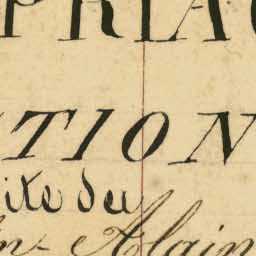 PRIA
TION
ite du
n- Alain